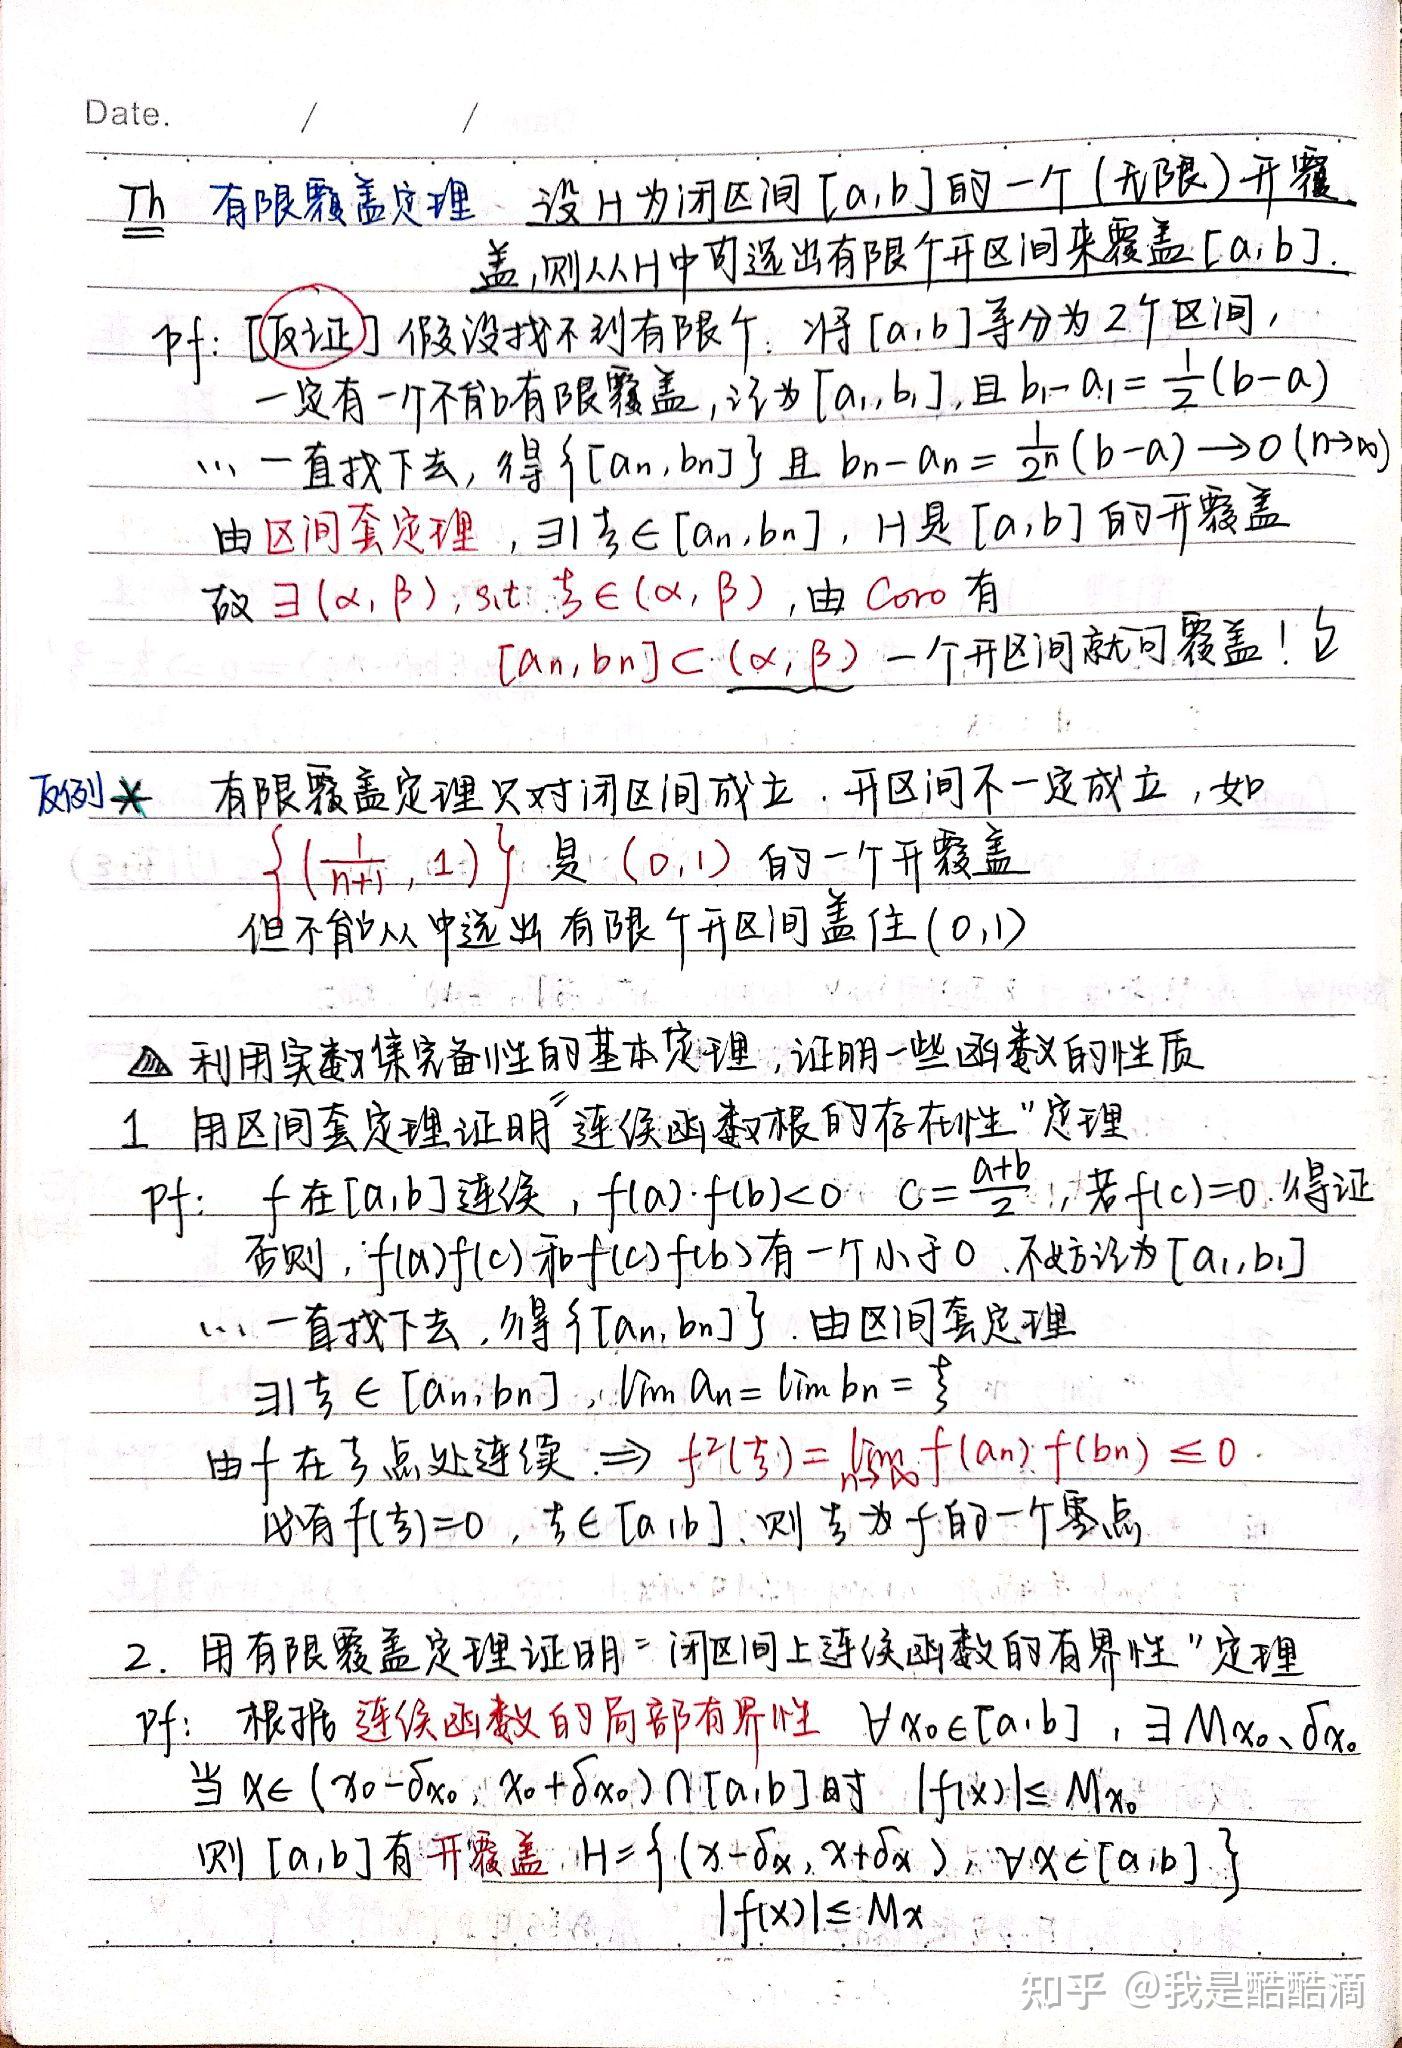 Date. / /
Th 有限覆盖定理 设H为闭区间[a,b]的一个(无限)开覆
盖,则从H中可选出有限个开区间来覆盖[a,b].
pf: [反证] 假设找不到有限个. 将[a,b]等分为2个区间,
一定有一个不能有限覆盖,记为[a₁,b₁],且 b₁-a₁=1/2(b-a)
... 一直找下去,得{[an,bn]}且 bn-an=1/2ⁿ(b-a)→0(n→∞)
由区间套定理,∃|ξ∈[an,bn], H是[a,b]的开覆盖
故∃(α,β), s.t. ξ∈(α,β),由Coro有
[an,bn]⊂(α,β) 一个开区间就可覆盖!
反例 * 有限覆盖定理只对闭区间成立.开区间不一定成立,如
{(1/(n+1),1)} 是 (0,1) 的一个开覆盖
但不能从中选出有限个开区间盖住(0,1)
利用实数集完备性的基本定理,证明一些函数的性质
1 用区间套定理证明“连续函数根的存在性”定理
pf: f在[a,b]连续,f(a)·f(b)<0 c=(a+b)/2,若f(c)=0.得证
否则,f(a)f(c)和f(c)f(b)有一个小于0.不妨记为[a₁,b₁]
... 一直找下去.得{[an,bn]}.由区间套定理
∃|ξ∈[an,bn],lim an=lim bn=ξ
由f在ξ点处连续⇒f²(ξ)=lim n→∞ f(an)·f(bn)≤0.
必有f(ξ)=0,ξ∈[a,b].则ξ为f的一个零点
2. 用有限覆盖定理证明“闭区间上连续函数的有界性”定理
pf: 根据连续函数的局部有界性 ∀x₀∈[a,b],∃Mx₀、δx₀
当x∈(x₀-δx₀,x₀+δx₀)∩[a,b]时 |f(x)|≤Mx₀
则[a,b]有开覆盖 H={(x-δx,x+δx),∀x∈[a,b]}
|f(x)|≤Mx
知乎 @我是酷酷滴